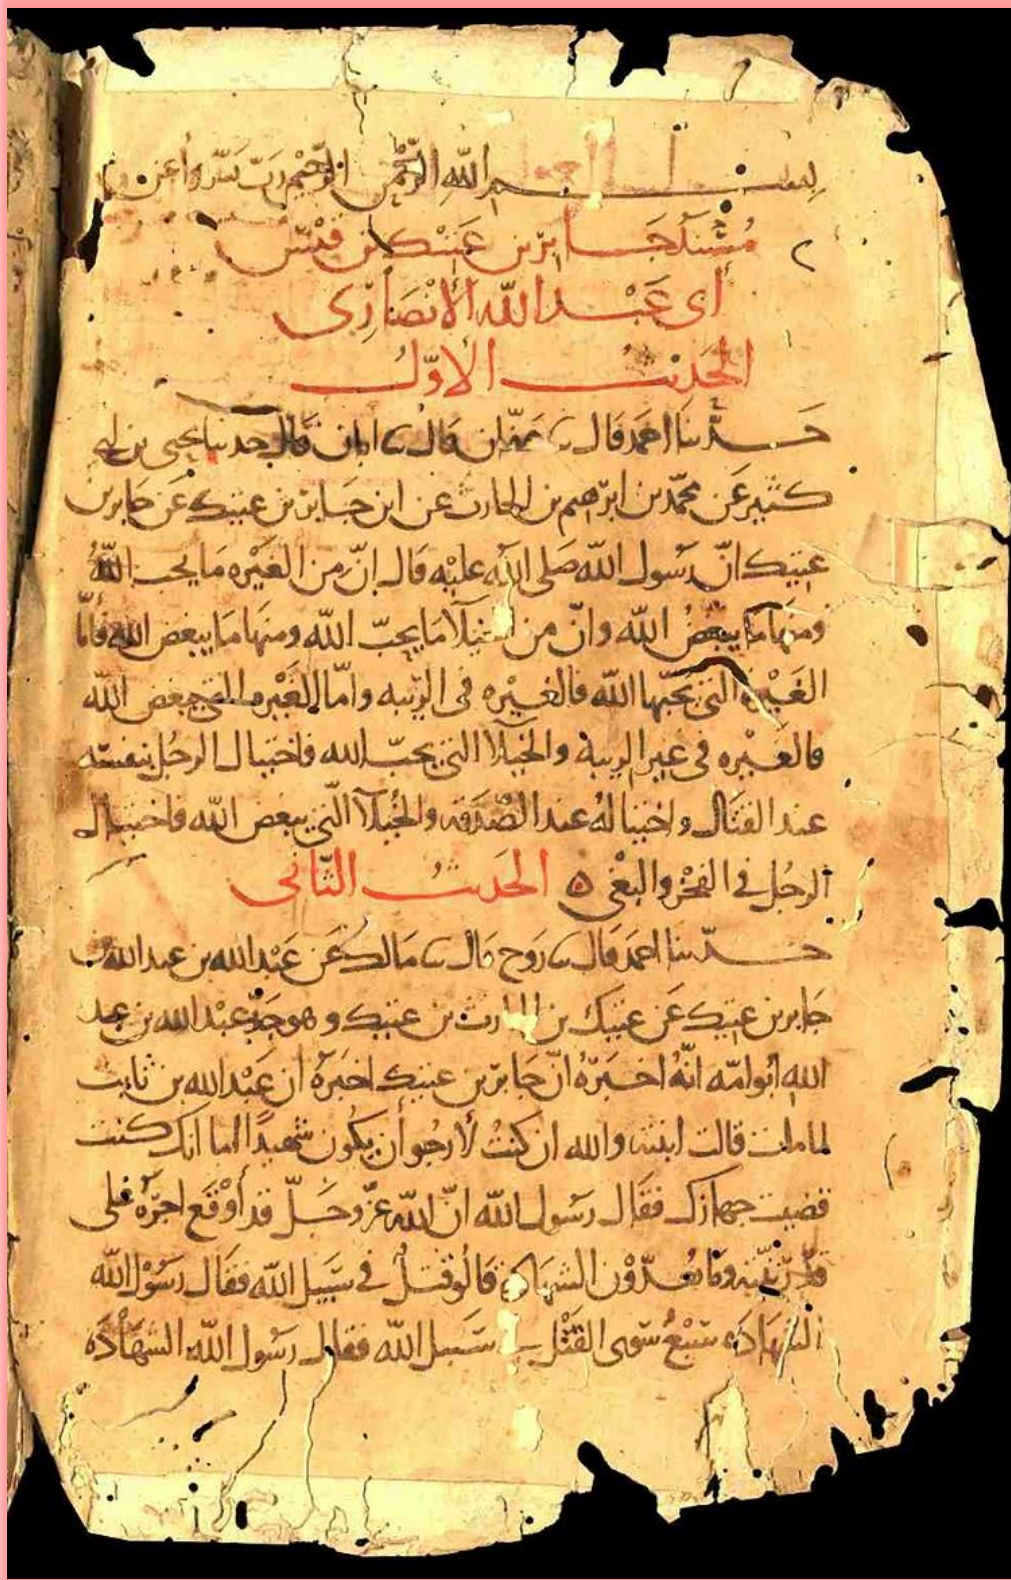 بسم الله الرحمن الرحيم رب يسر وأعن
مُسْنَد جَابر بن عَتِيْك بن قيْس
أبى عَبْد الله الأنْصَارِى
الحَديث الأوّل
حَدّثنا احمَد قال ثنا عفّان قال ثنا ابان قال حدثنا يحيى بن ابى
كثير عَن محمّد بن ابرَاهيم بن الحارث عن ابن جَابر بن عتيك عَن جَابر بن
عتيك انّ رسُول الله صَلى الله عليْه قال إنّ من الغَيْره مَا يحب اللهُ
ومنهَا مَا يبغضُ الله وانّ من الخيلآ مَا يحبّ الله ومنها مَا يبغض الله فأمّا
الغَيْره التى يحبّها الله فالغيْره فى الرّيبه وامّا الغَيْره التى يبغض الله
فالغَيْره فى غير الريبة والخيلآ التى يحبّ الله فاختيال الرجُل بنفسه
عند القتَال واختيالهُ عند الصّدَقه والخُيلآ التّى يبغض الله فاختيال
الرجُل فى الفخْر والبَغْى ه الحَديثُ الثّانى
حَدّثنا احمَد قال ثنا رَوح قال ثنا مَالك عَن عَبْد الله بن عبد الله بن
جَابر بن عتيك عَن عتيك بن الحارث بن عتيك وهو جَدّ عبْد الله بن عبد
الله أبُو امّه انّهُ اخبَرَهُ انّ جَابرَ بن عتيك اخبَرَهُ أن عَبْد الله بن ثابت
لما مات قالت ابنته والله ان كنتُ لأرجُو أن يكُون شهيدًا اما انك كنت
قضيت جهازك فقَال رسُول الله انّ الله عزّ وجَلّ قد أوْقَع اجرَهُ على
قدْر نيّته ومَا تعُدّوْن الشهَادة قالُو قتلٌ فى سَبيل الله فقَال رسُوْل الله
الشهَادَه سَبْعٌ سوَى القَتْل فى سَبيل الله فقال رسُول الله الشهَادَه